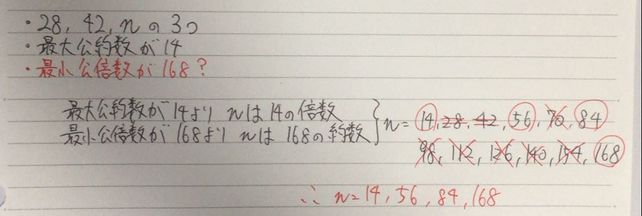 ・28, 42, n の 3つ
・最大公約数が14
・最小公倍数が168?
最大公約数が14より nは14の倍数
最小公倍数が168より nは 168の約数
n = 14, 28, 42, 56, 70, 84
98, 112, 126, 140, 154, 168
∴ n=14, 56, 84, 168